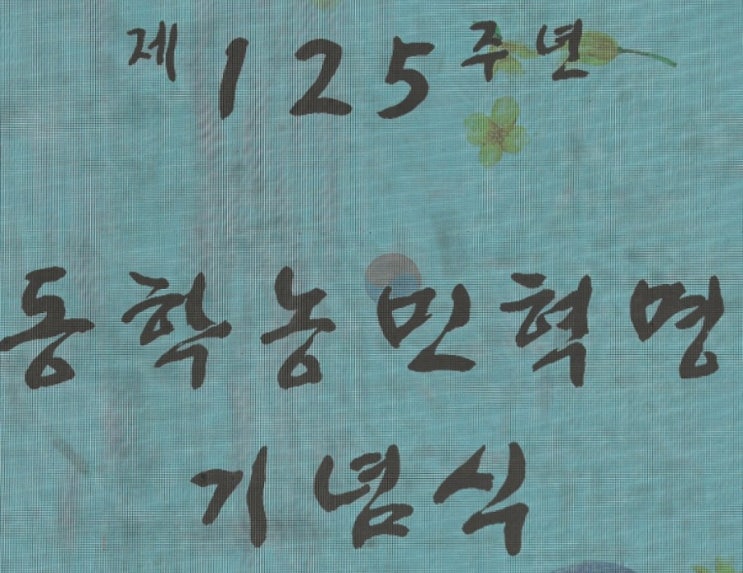 제125주년
동학농민혁명
기념식